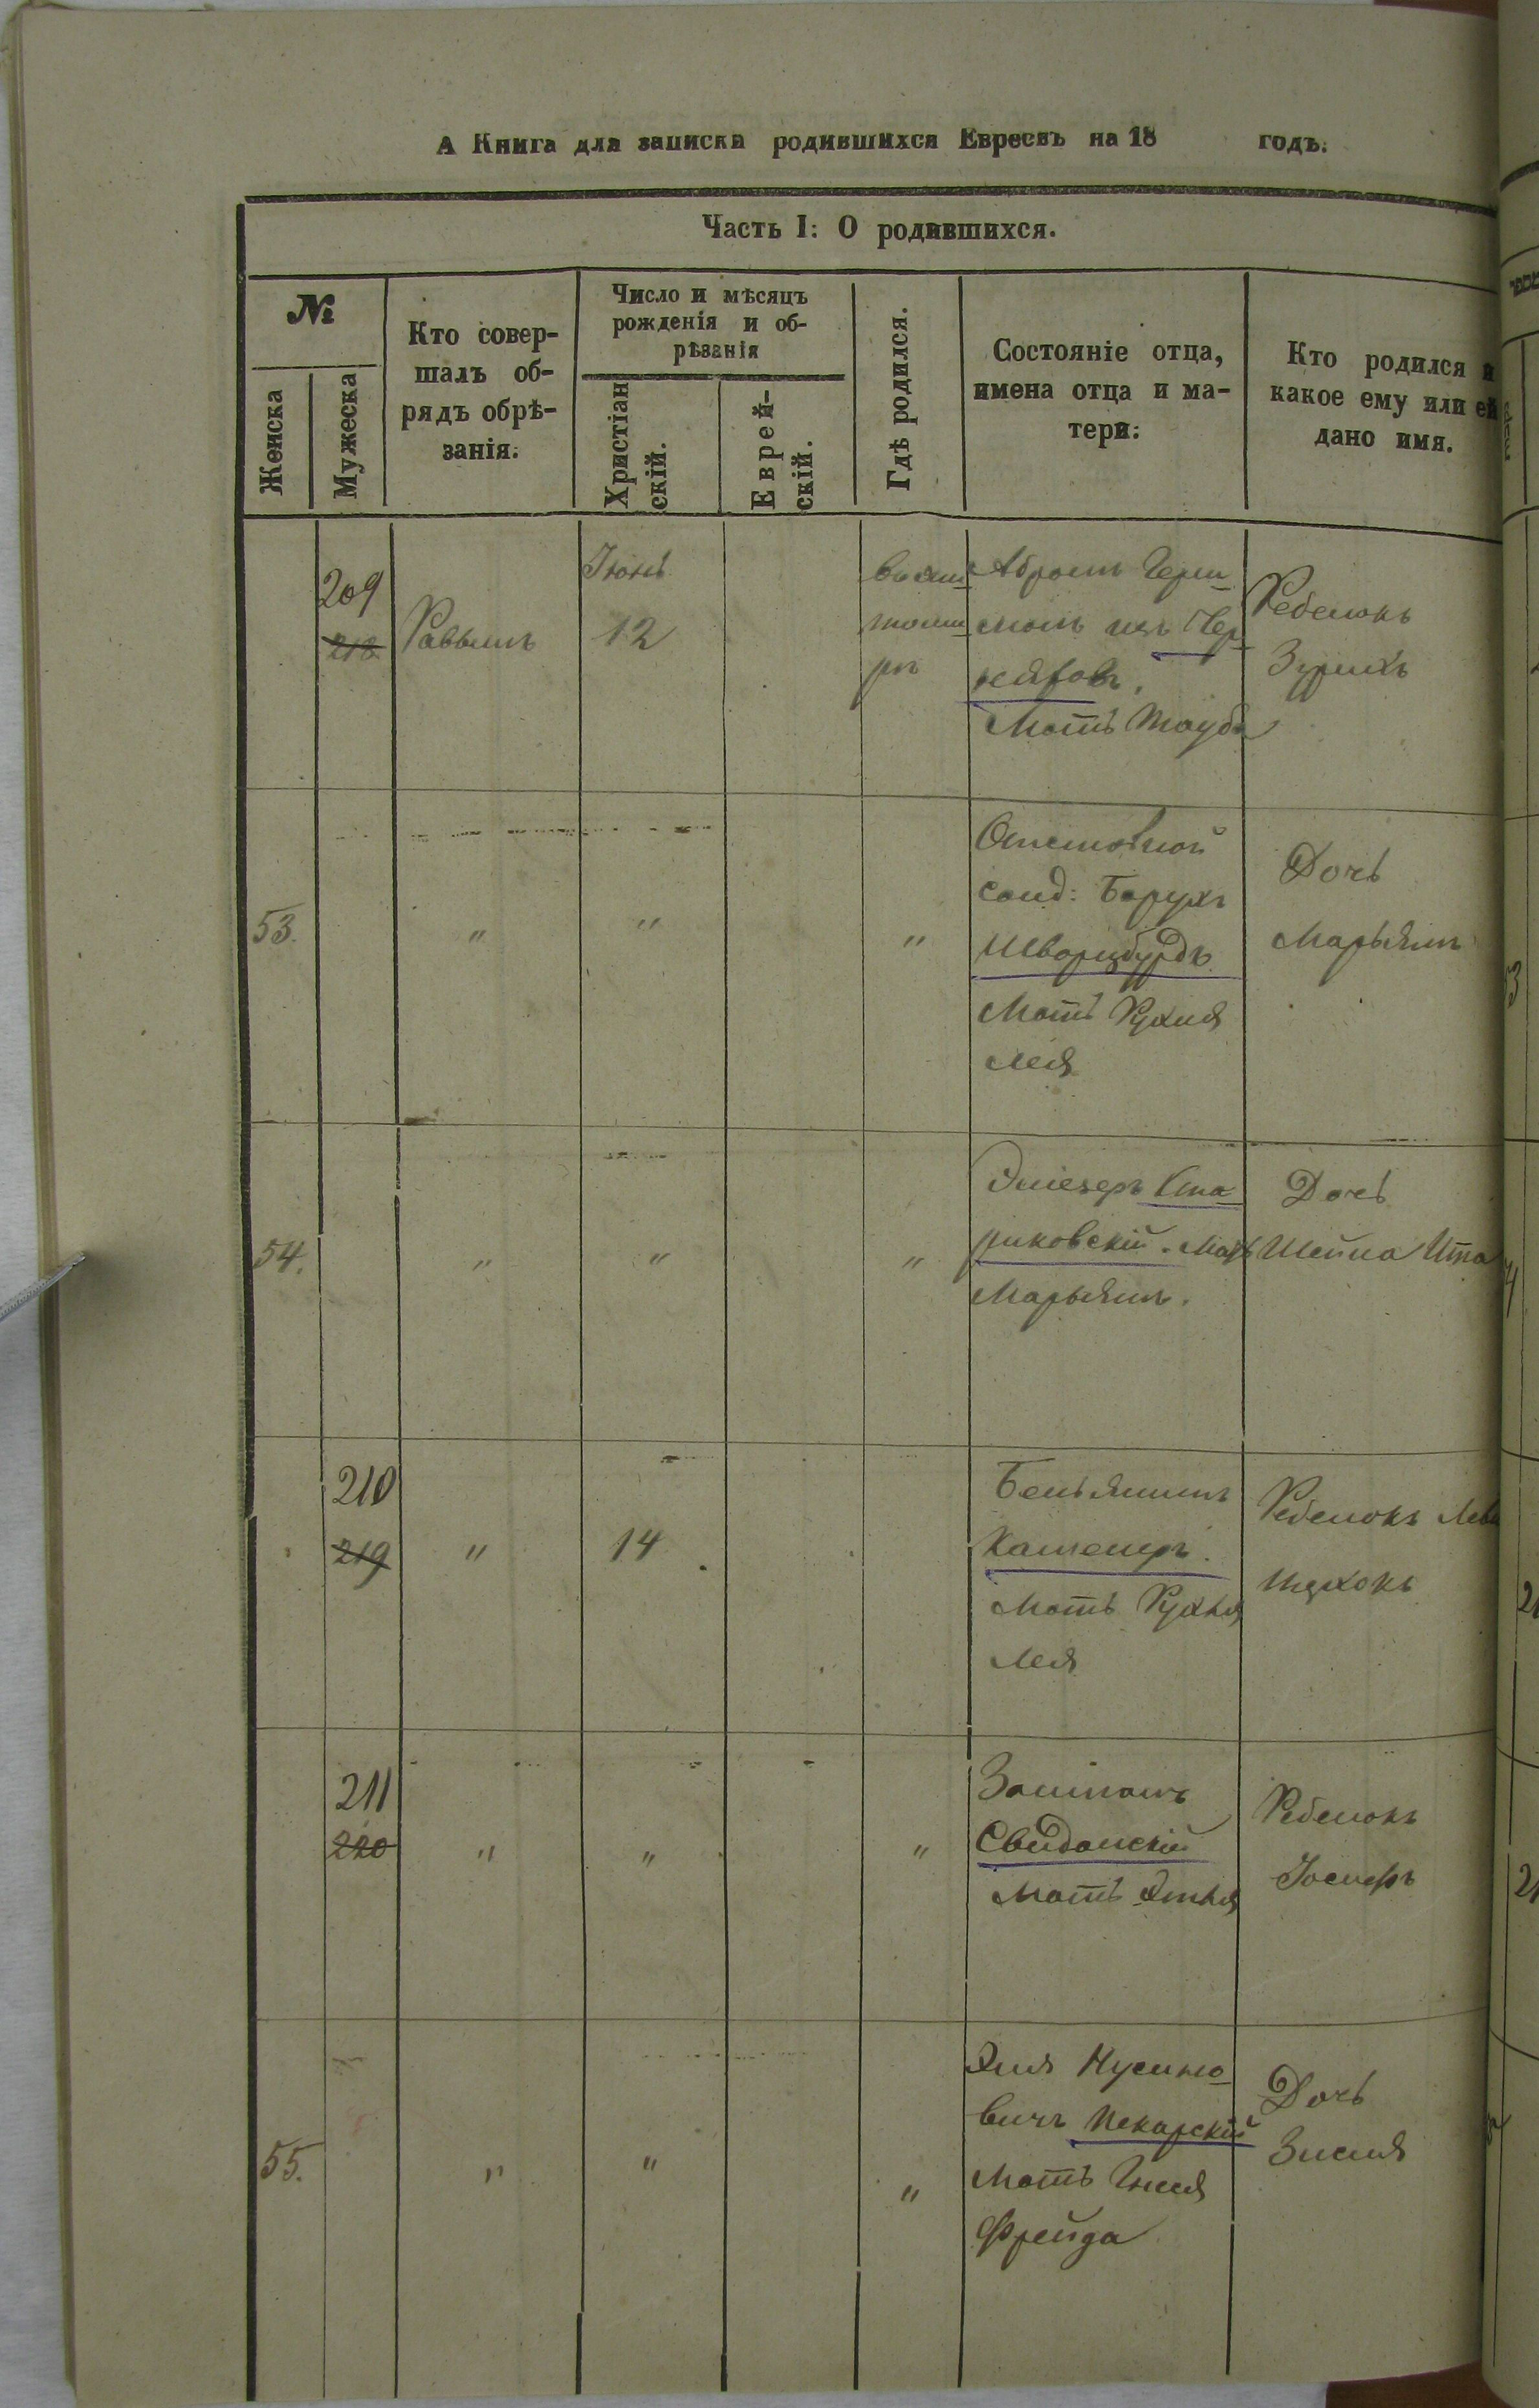 А Книга для записки родившихся Евреевъ на 18 годъ.
Часть I: О родившихся.
№
Женска
Мужеска
Кто совер-
шалъ об-
рядъ обрѣ-
занія.
Число и мѣсяцъ
рожденія и об-
рѣзанія
Христіан
скій.
Еврей-
скій.
Гдѣ родился.
Состояніе отца,
имена отца и ма-
тери.
Кто родился и
какое ему или ей
дано имя.
209
218
Раввинъ
Іюнь
12
въ жи
томи
рѣ
Абрамъ
изъ Чер
Мать Тауба
Ребенокъ
53.
"
"
"
Отставной
солд: Борухъ
Шварцбурдъ
Мать Рухля
Лея
Дочь
Марьямъ
54.
"
"
"
Эліезеръ Ста
риковскій. Мать
Марьямъ.
Дочь
Шейна Ита
210
219
"
14
Беньяминъ
Мать Рухля
Лея
Ребенокъ
Ицхокъ
211
220
"
"
"
Залманъ
Свиданскій
Мать Этля
Ребенокъ
Іосифъ
55.
"
"
"
Эля Нусино
вичъ Пекарскій
Мать Гнеся
Фрейда
Дочь
Зисля